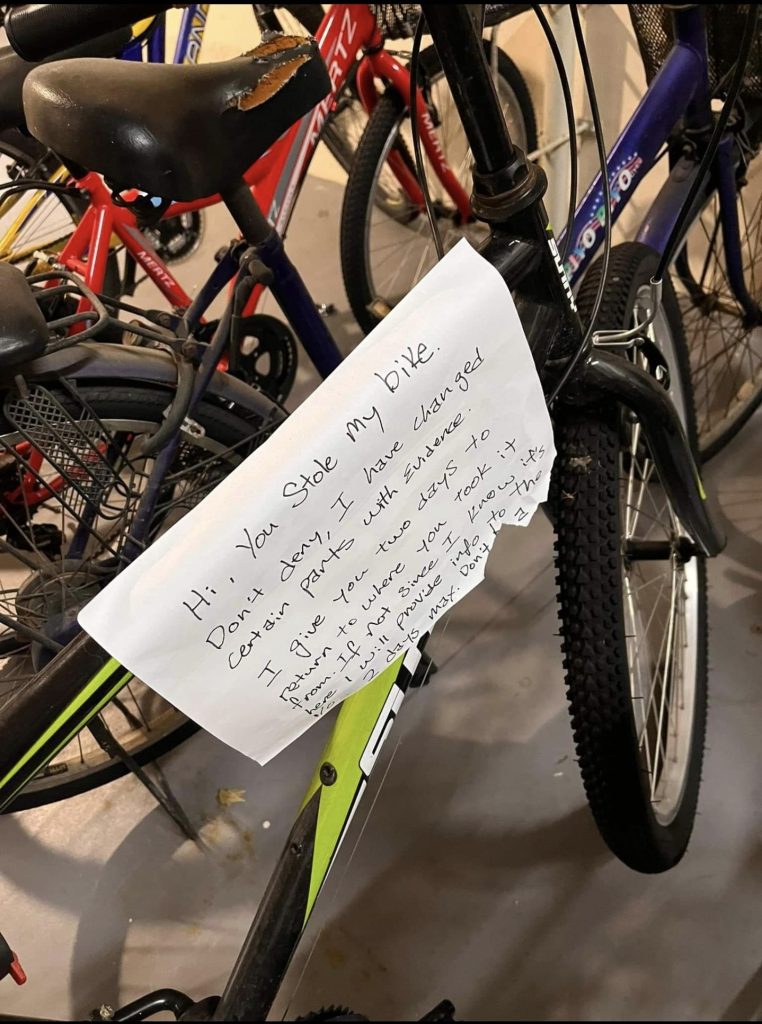 MERTZ
MERTZ
MERTZ
Hi, You Stole My bike.
Don't deny, I have changed
certain parts with Evidence.
I give you two days to
return to where you took it
from. If not since I know it's
here I will provide info to the
2 days max. Don't